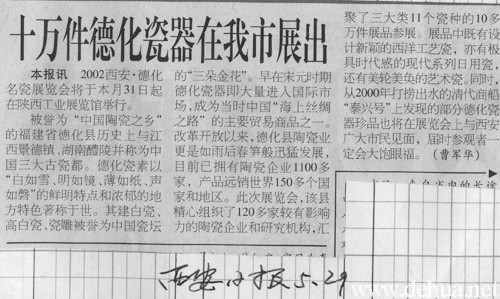 十万件德化瓷器在我市展出
本报讯 2002西安·德化
名瓷展览会将于本月31日起
在陕西工业展览馆举行。
被誉为“中国陶瓷之乡”
的福建省德化县历史上与江
西景德镇，湖南醴陵并称为中
国三大古瓷都。德化瓷素以
“白如雪，明如镜，薄如纸、声
如磬”的鲜明特点和浓郁的地
方特色著称于世。其建白瓷、
高白瓷、瓷雕被誉为中国瓷坛
的“三朵金花”。早在宋元时期
德化瓷器即大量进入国际市
场，成为当时中国“海上丝绸
之路”的主要贸易商品之一。
改革开放以来，德化县陶瓷业
更是如雨后春笋般迅猛发展，
目前已拥有陶瓷企业1100多
家，产品远销世界150多个国
家和地区。此次展览会，该县
精心组织了120多家较有影响
力的陶瓷企业和研究机构，汇
聚了三大类11个瓷种的10多
万件展品参展。展品中既有设
计新颖的西洋工艺瓷，亦有极
具时代感的现代系列日用瓷，
还有美轮美奂的艺术瓷。同时，
从2000年打捞出水的清代商船
“泰兴号”上发现的部分德化瓷
器珍品也将在展览会上与西安
广大市民见面，届时参观者一
定会大饱眼福。（曹军华）
西安晚报 5.29
www.dehua.net